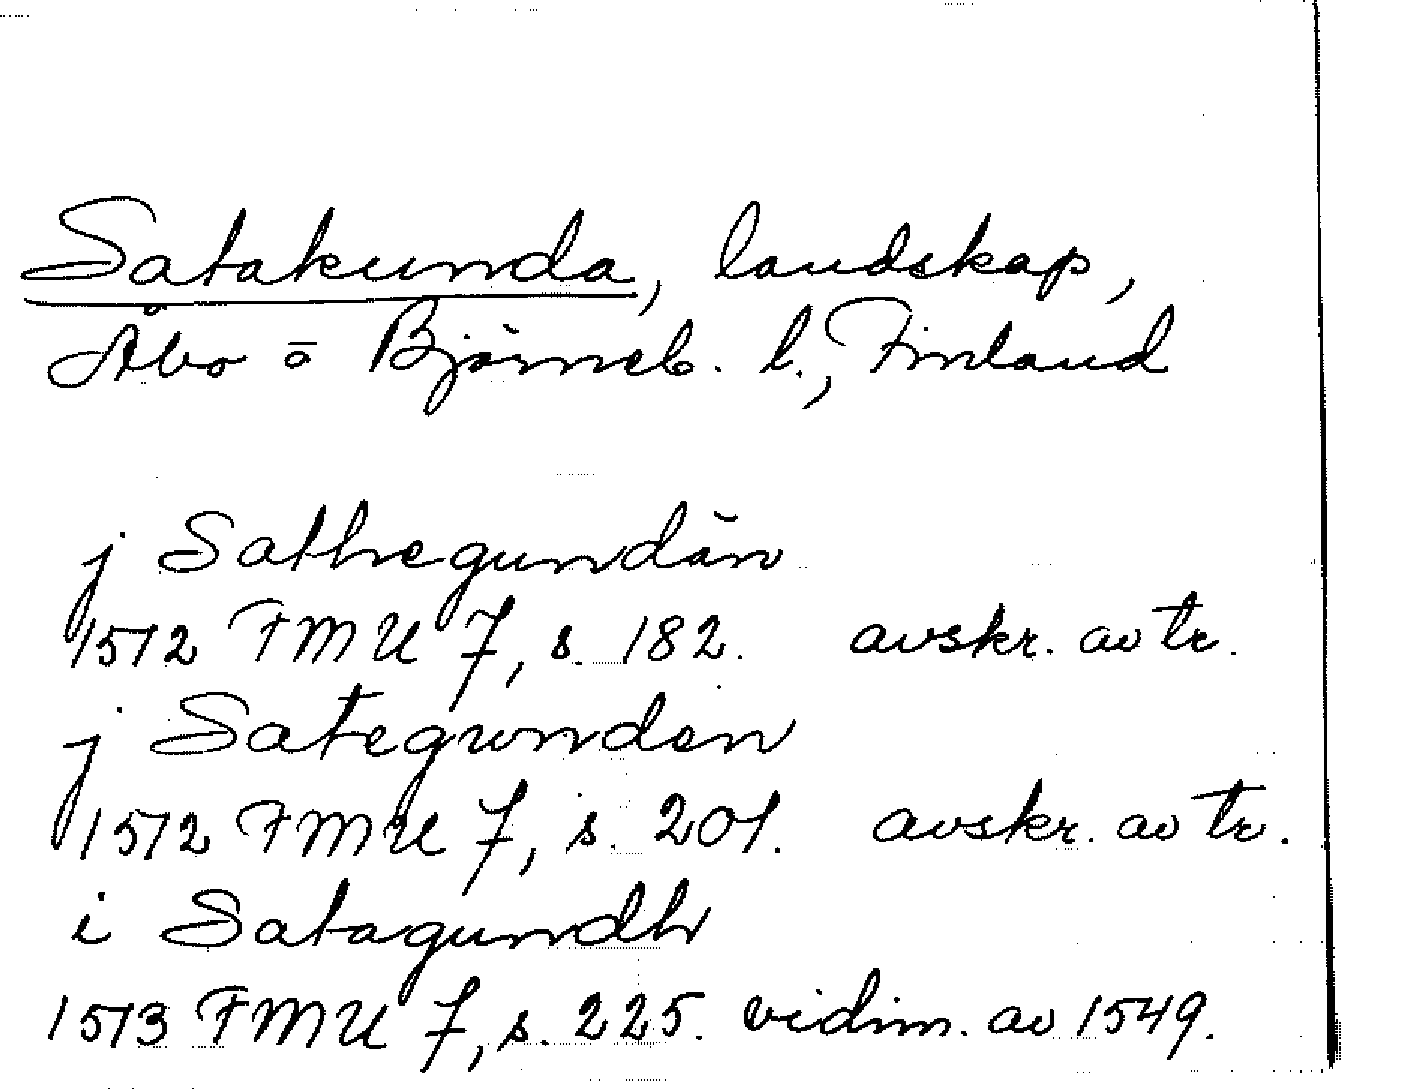 Satakunda, landskap,
Åbo o Björneb. l., Finland
j Sathegundän
1512 FMU 7, s. 182. avskr. av tr.
j Sategwnden
1512 FMU 7, s. 201. avskr. av tr.
i Satagundh
1513 FMU 7, s. 225. vidim. av 1549.